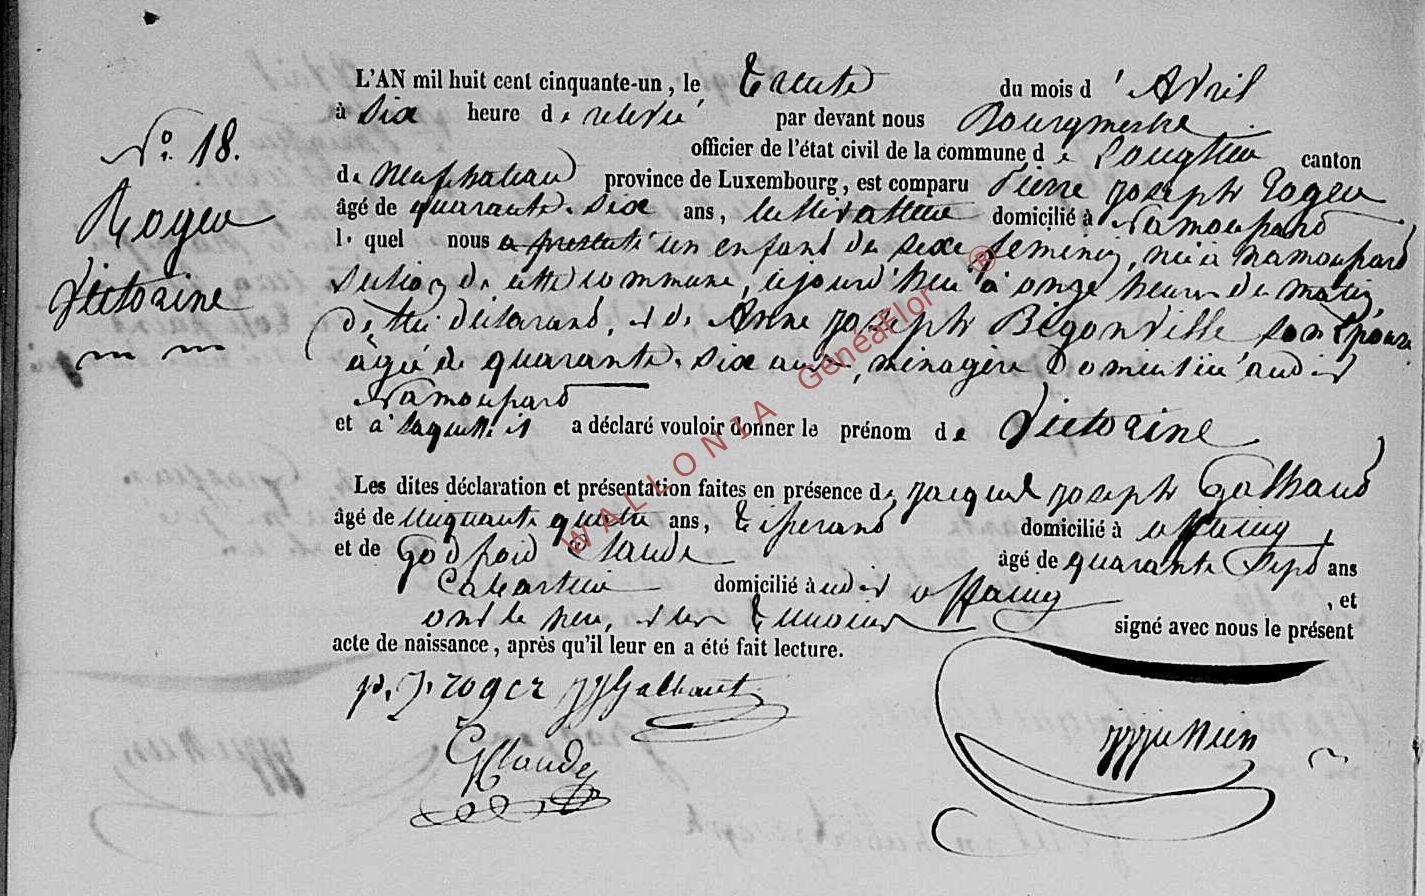 L'AN mil huit cent cinquante-un, le trente du mois d'Avril
à six heure de relevée par devant nous Bourgmestre
officier de l'état civil de la commune de Longlier canton
N° 18.
Roger
Victorine
de Neufchateau province de Luxembourg, est comparu Pierre Joseph Roger
âgé de quarante six ans, cultivateur domicilié à Namoussard
lequel nous a présenté un enfant du sexe feminin, née à Namoussard
section de cette commune, cejourd'hui à onze heures du matin
de lui déclarant, et de Anne Joseph Bégonville son épouse
âgée de quarante six ans, ménagère domiciliée audit
Namoussard
et à laquelle il a déclaré vouloir donner le prénom de Victorine
Les dites déclaration et présentation faites en présence de Jacques Joseph Galhaud
âgé de cinquante quatre ans, Tisserand domicilié à offaing
et de Godfroid Claude âgé de quarante sept ans
Cabartier domicilié audit offaing, et
ont le père, et les témoins signé avec nous le présent
acte de naissance, après qu'il leur en a été fait lecture.
p. J. roger JJ Galhaut
G Claude
WALLONIA GenéaFlor ®